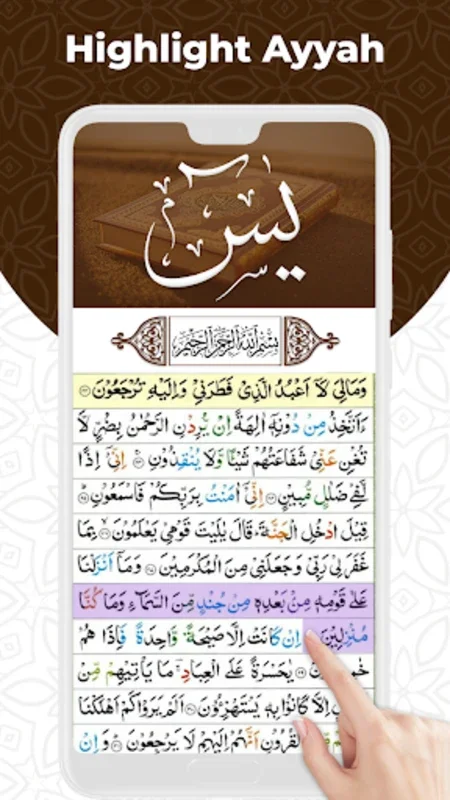 Highlight Ayyah
يٰسٓ
بِسْمِ اللّٰهِ الرَّحْمٰنِ الرَّحِيْمِ
وَمَالِيَ لَآ اَعْبُدُ الَّذِيْ فَطَرَنِيْ وَاِلَيْهِ تُرْجَعُوْنَ ﴿۲۲﴾
ءَاَتَّخِذُ مِنْ دُوْنِهٖٓ اٰلِهَةً اِنْ يُّرِدْنِ الرَّحْمٰنُ بِضُرٍّ لَّا
تُغْنِ عَنِّيْ شَفَاعَتُهُمْ شَيْئًا وَّلَا يُنْقِذُوْنِ ﴿۲۳﴾ اِنِّيْٓ اِذًا
لَّفِيْ ضَلٰلٍ مُّبِيْنٍ ﴿۲۴﴾ اِنِّيْٓ اٰمَنْتُ بِرَبِّكُمْ فَاسْمَعُوْنِ ﴿۲۵﴾
قِيْلَ ادْخُلِ الْجَنَّةَ ۭ قَالَ يٰلَيْتَ قَوْمِيْ يَعْلَمُوْنَ ﴿۲۶﴾ بِمَا
غَفَرَ لِيْ رَبِّيْ وَجَعَلَنِيْ مِنَ الْمُكْرَمِيْنَ ﴿۲۷﴾ وَمَآ اَنْزَلْنَا
عَلٰى قَوْمِهٖ مِنْۢ بَعْدِهٖ مِنْ جُنْدٍ مِّنَ السَّمَآءِ وَمَا كُنَّا
مُنْزِلِيْنَ اِنْ كَانَتْ اِلَّا صَيْحَةً وَّاحِدَةً فَاِذَا هُمْ
يٰحَسْرَةً عَلَى الْعِبَادِ ۚ مَا يَاْتِيْهِمْ مِّنْ
اِلَّا كَانُوْا بِهٖ يَسْتَهْزِءُوْنَ ﴿۳۰﴾ اَلَمْ يَرَوْا كَمْ اَهْلَكْنَا
الْقُرُوْنِ اَنَّهُمْ اِلَيْهِمْ لَا يَرْجِعُوْنَ ﴿۳۱﴾ وَاِنْ